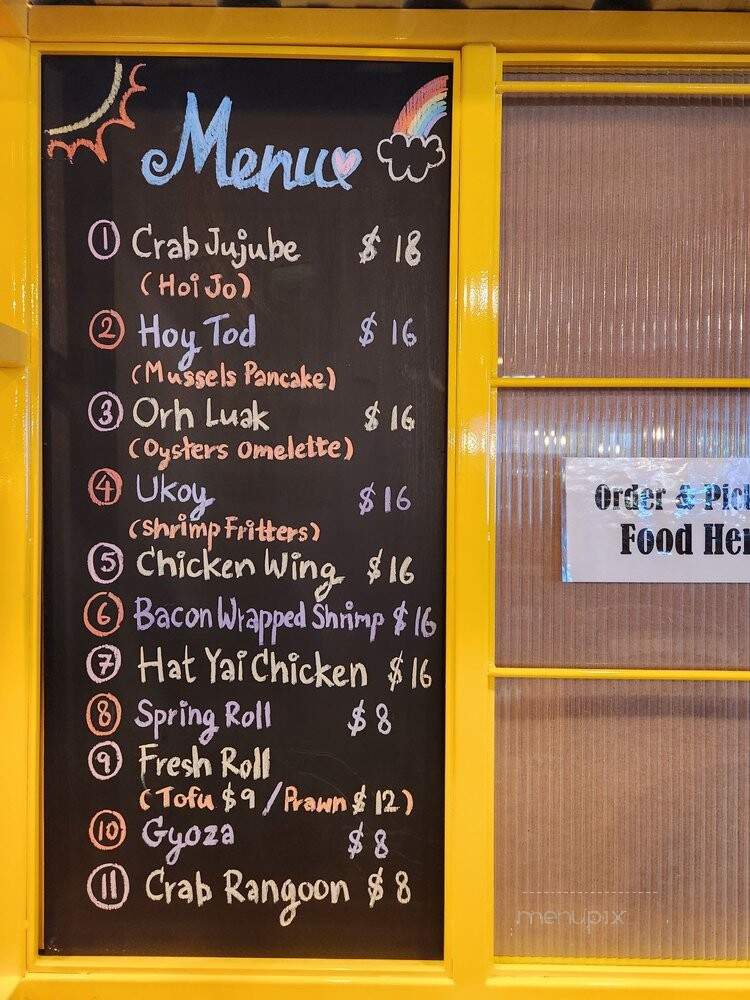 Menu
① Crab Jujube $ 18
(Hoi Jo)
② Hoy Tod $ 16
(Mussels Pancake)
③ Orh Luak $ 16
(Oysters Omelette)
④ Ukoy $ 16
(Shrimp Fritters)
⑤ Chicken Wing $ 16
⑥ Bacon Wrapped Shrimp $ 16
⑦ Hat Yai Chicken $ 16
⑧ Spring Roll $ 8
⑨ Fresh Roll
(Tofu $ 9 / Prawn $ 12)
⑩ Gyoza $ 8
⑪ Crab Rangoon $ 8
Order &
Food
menupix